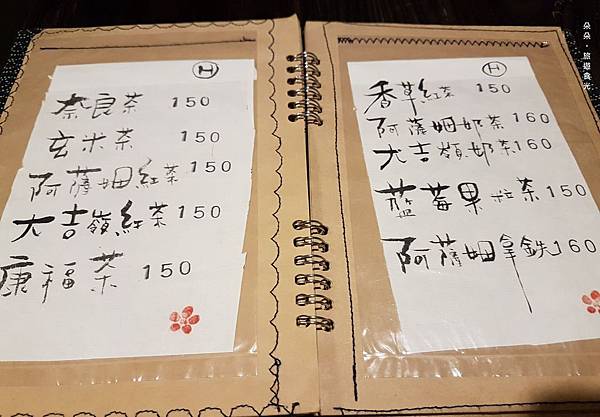 H
奈良茶 150
玄米茶 150
阿薩姆紅茶 150
大吉嶺紅茶 150
康福茶 150
H
香草紅茶 150
阿薩姆奶茶 160
大吉嶺奶茶 160
藍莓果粒茶 150
阿薩姆拿鉄 160
朵朵・旅遊食光